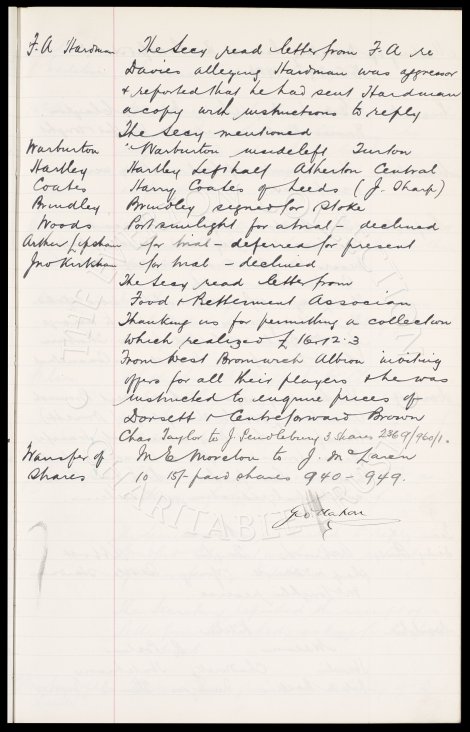 F.A Hardman The Secy read letter from F.A re
Davies alleging Hardman was aggressor
& reported that he had sent Hardman
a copy with instructions to reply
The Secy mentioned
Warburton Warburton insideleft Turton
Hartley Hartley Left half Atherton Central
Coates Harry Coates of Leeds (J. Sharp)
Brindley Brindley signed for Stoke
Woods Port sunlight for a trial - declined
Arthur Upham for trial - deferred for present
Jno Kirkham for trial - declined
The Secy read letter from
Food & Betterment Association
Thanking us for permitting a collection
which realized £16.12.3
From West Bromwich Albion inviting
offers for all their players & he was
instructed to enquire prices of
Dorsett & Centreforward Brown
Chas. Taylor to J. Pendlebury 3 shares 2369/960/1.
Transfer of M E Morelon to J. McLaren
Shares 10 15/- paid shares 940 - 949.
Geo Mahon